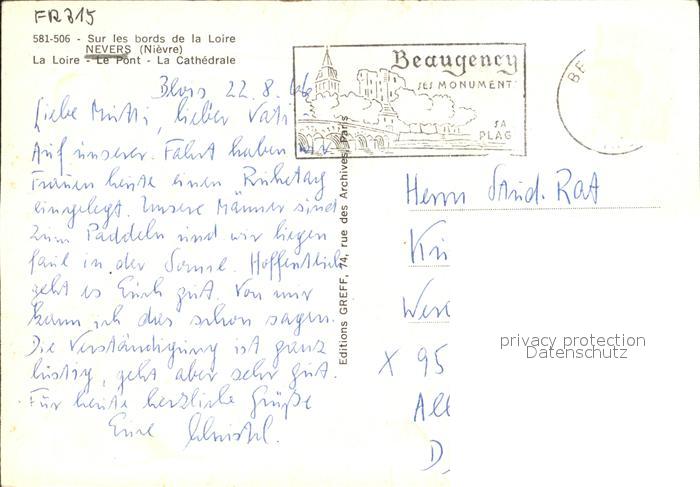 FR 715
581-506 - Sur les bords de la Loire
NEVERS (Nièvre)
La Loire - Le Pont - La Cathédrale
Blois 22.8.66
Liebe Mutti, lieber Vati
Auf unserer Fahrt haben wir
Frauen heute einen Ruhetag
eingelegt. Unsere Männer sind
zum Paddeln und wir liegen
faul in der Sonne. Hoffentlich
geht es Euch gut. Von mir
kann ich das schon sagen.
Die Verständigung ist ganz
lustig, geht aber sehr gut.
Für heute herzliche Grüße
Eure Christl.
Editions GREFF, 74, rue des Archives, Paris
Beaugency
SES MONUMENT
SA
PLAG
BE
Herrn Stud. Rat
X 95
D,
privacy protection
Datenschutz